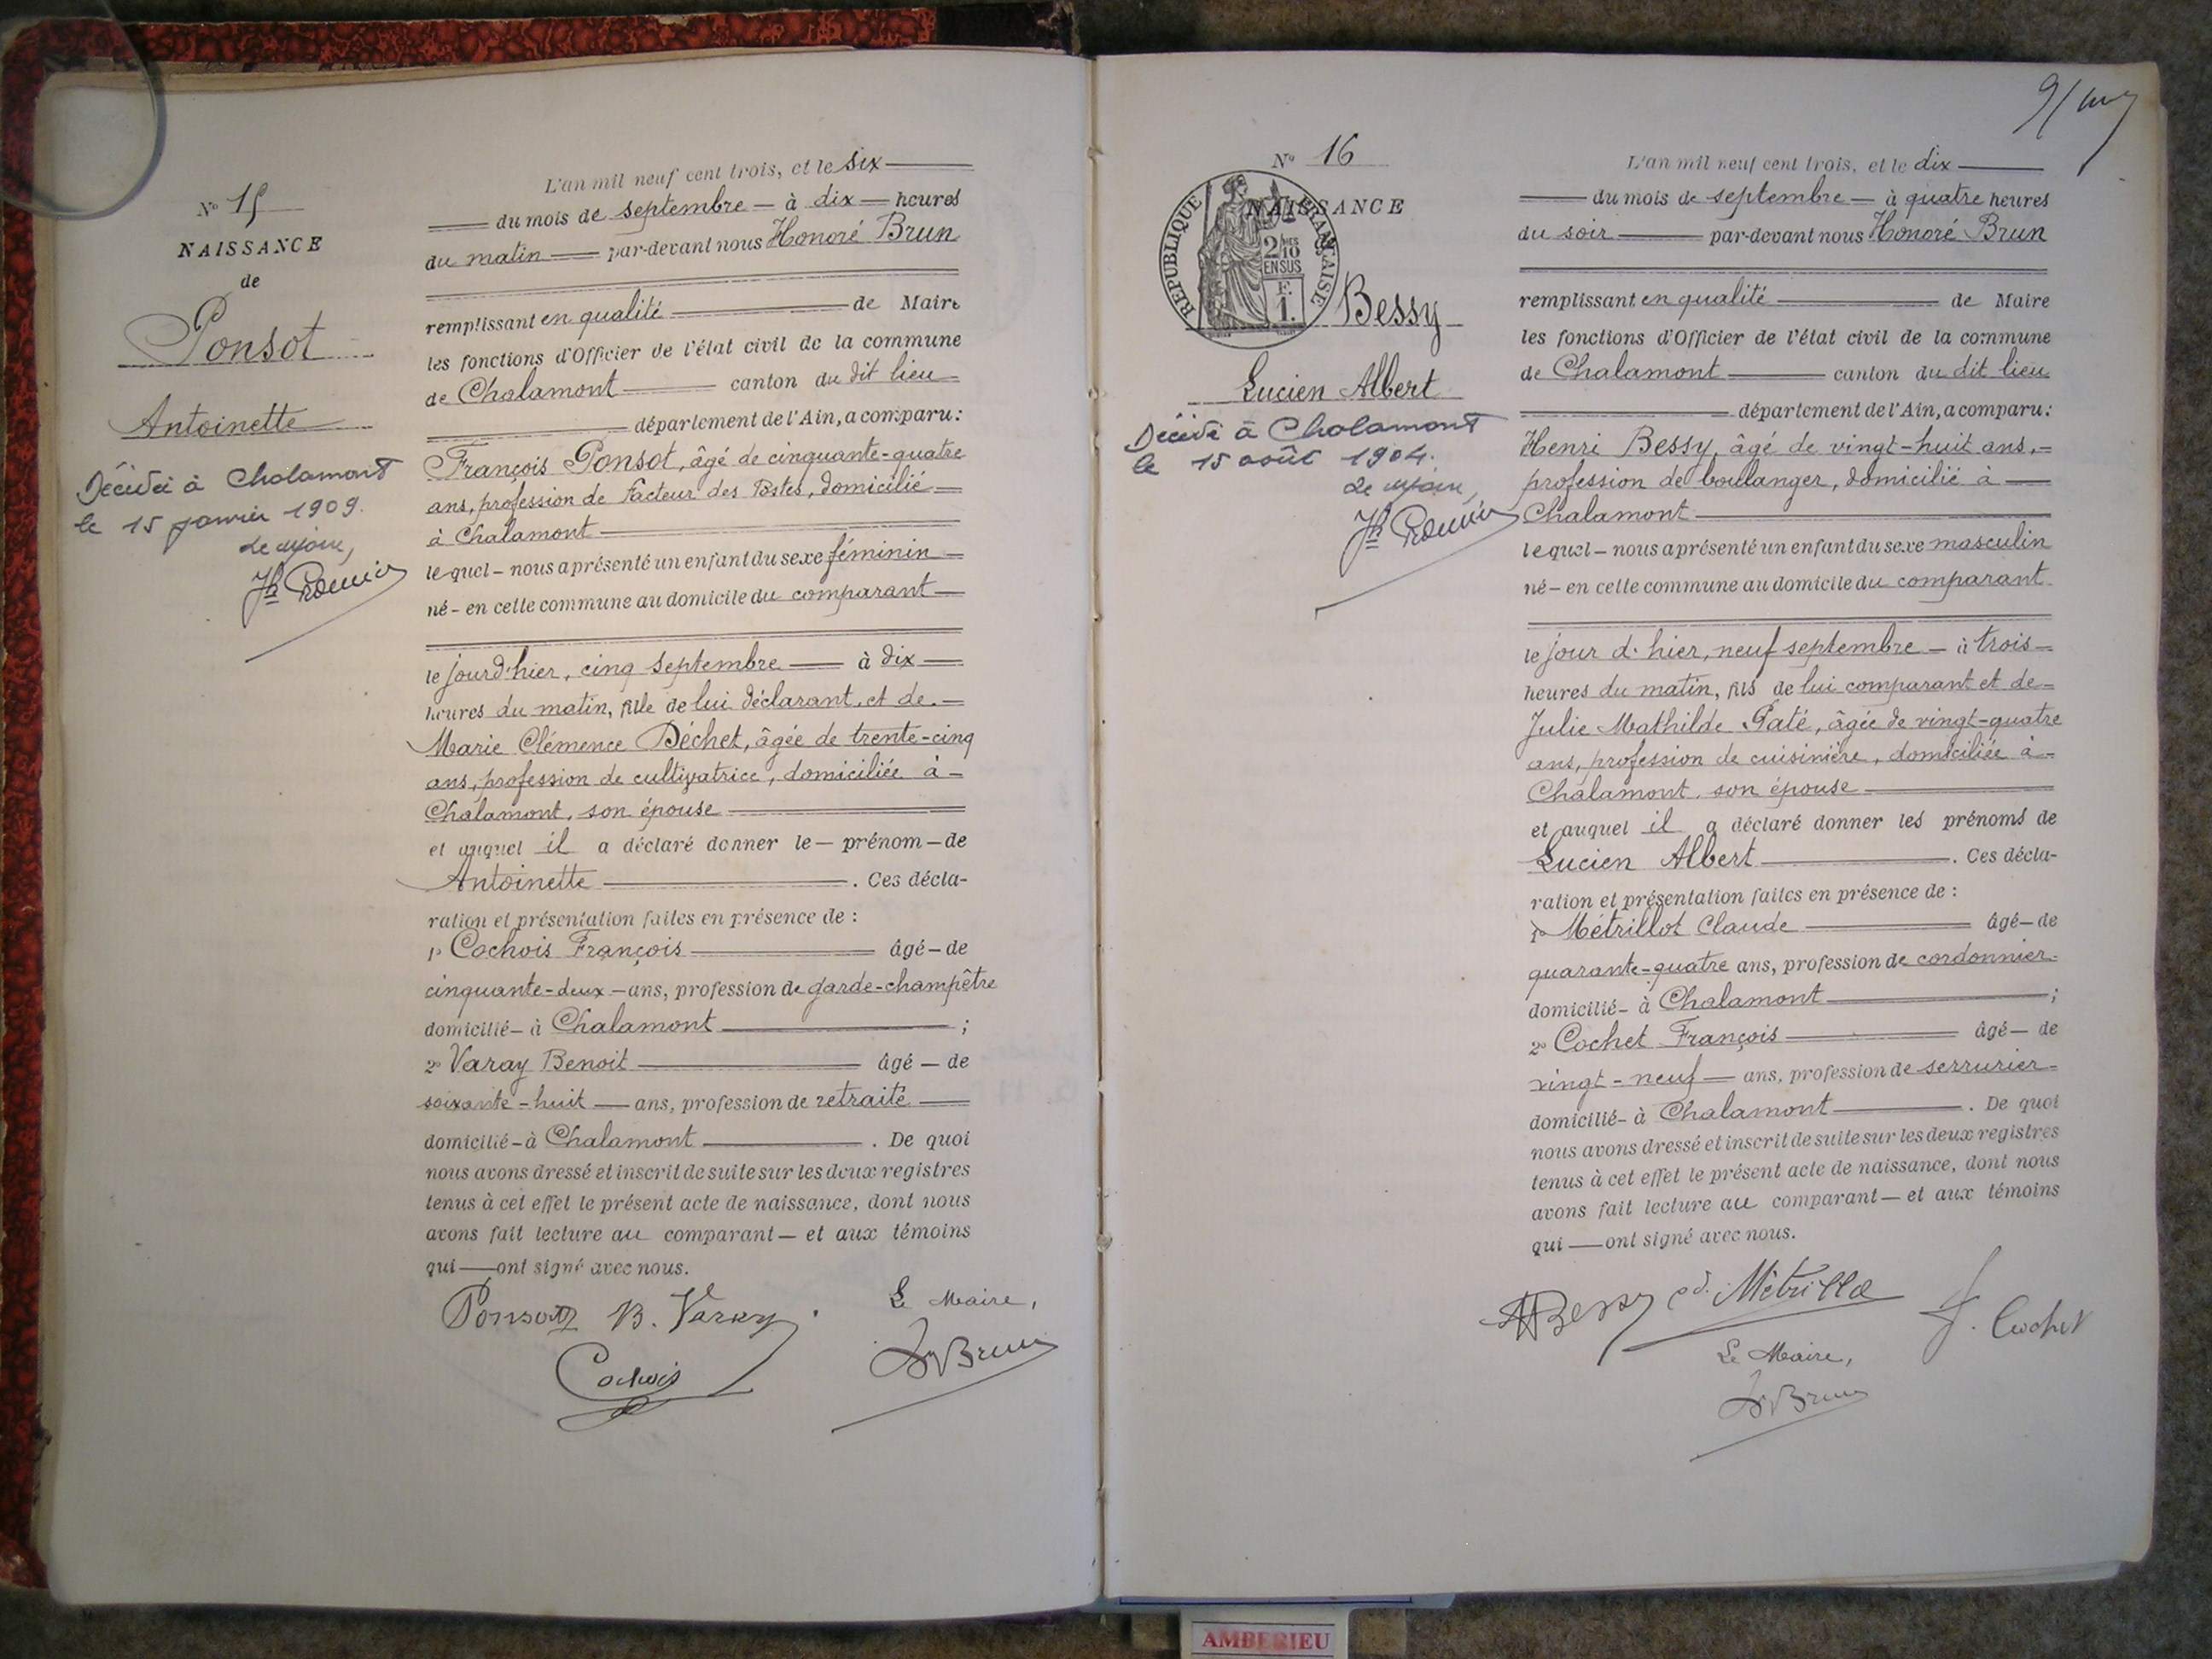 Nº 15
NAISSANCE
de
Ponsot
Antoinette
Décédée à Chalamont
le 15 janvier 1909.
Le Maire,
L'an mil neuf cent trois, et le six
du mois de septembre — à dix — heures
du matin — par-devant nous Honoré Brun
remplissant en qualité — de Maire
les fonctions d'Officier de l'état civil de la commune
de Chalamont — canton du dit lieu
département de l'Ain, a comparu :
François Ponsot, âgé de cinquante-quatre
ans, profession de Facteur des Postes, domicilié
à Chalamont
lequel - nous a présenté un enfant du sexe féminin
né - en cette commune au domicile du comparant
le jour d'hier, cinq septembre — à dix
heures du matin, fille de lui déclarant, et de
Marie Clémence Déchet, âgée de trente-cinq
ans, profession de cultivatrice, domiciliée à
Chalamont, son épouse
et auquel il a déclaré donner le — prénom — de
Antoinette — . Ces décla-
ration et présentation faites en présence de :
1º Cochois François — âgé — de
cinquante-deux — ans, profession de garde-champêtre
domicilié - à Chalamont — ;
2º Varay Benoit — âgé — de
soixante-huit — ans, profession de retraité
domicilié - à Chalamont — . De quoi
nous avons dressé et inscrit de suite sur les deux registres
tenus à cet effet le présent acte de naissance, dont nous
avons fait lecture au comparant — et aux témoins
qui — ont signé avec nous.
Ponsot B. Varay
Le Maire,
Cochois
Hré Brun
Nº 16
NAISSANCE
RÉPUBLIQUE FRANÇAISE
2/10
EN SUS
F.
1.
Bessy
Lucien Albert
Décédé à Chalamont
le 15 août 1904.
Le Maire,
L'an mil neuf cent trois, et le dix
du mois de septembre — à quatre heures
du soir — par-devant nous Honoré Brun
remplissant en qualité — de Maire
les fonctions d'Officier de l'état civil de la commune
de Chalamont — canton du dit lieu
département de l'Ain, a comparu :
Henri Bessy, âgé de vingt-huit ans,
profession de boulanger, domicilié à
Chalamont
lequel - nous a présenté un enfant du sexe masculin
né - en cette commune au domicile du comparant
le jour d'hier, neuf septembre — à trois
heures du matin, fils de lui comparant et de
Julie Mathilde Paté, âgée de vingt-quatre
ans, profession de cuisinière, domiciliée à
Chalamont, son épouse
et auquel il a déclaré donner les prénoms de
Lucien Albert — . Ces décla-
ration et présentation faites en présence de :
1º Métrillot Claude — âgé — de
quarante-quatre ans, profession de cordonnier
domicilié - à Chalamont — ;
2º Cochet François — âgé — de
vingt-neuf — ans, profession de serrurier
domicilié - à Chalamont — . De quoi
nous avons dressé et inscrit de suite sur les deux registres
tenus à cet effet le présent acte de naissance, dont nous
avons fait lecture au comparant — et aux témoins
qui — ont signé avec nous.
HBessy Cd. Métrillot
F. Cochet
Le Maire,
Hré Brun
AMBERIEU